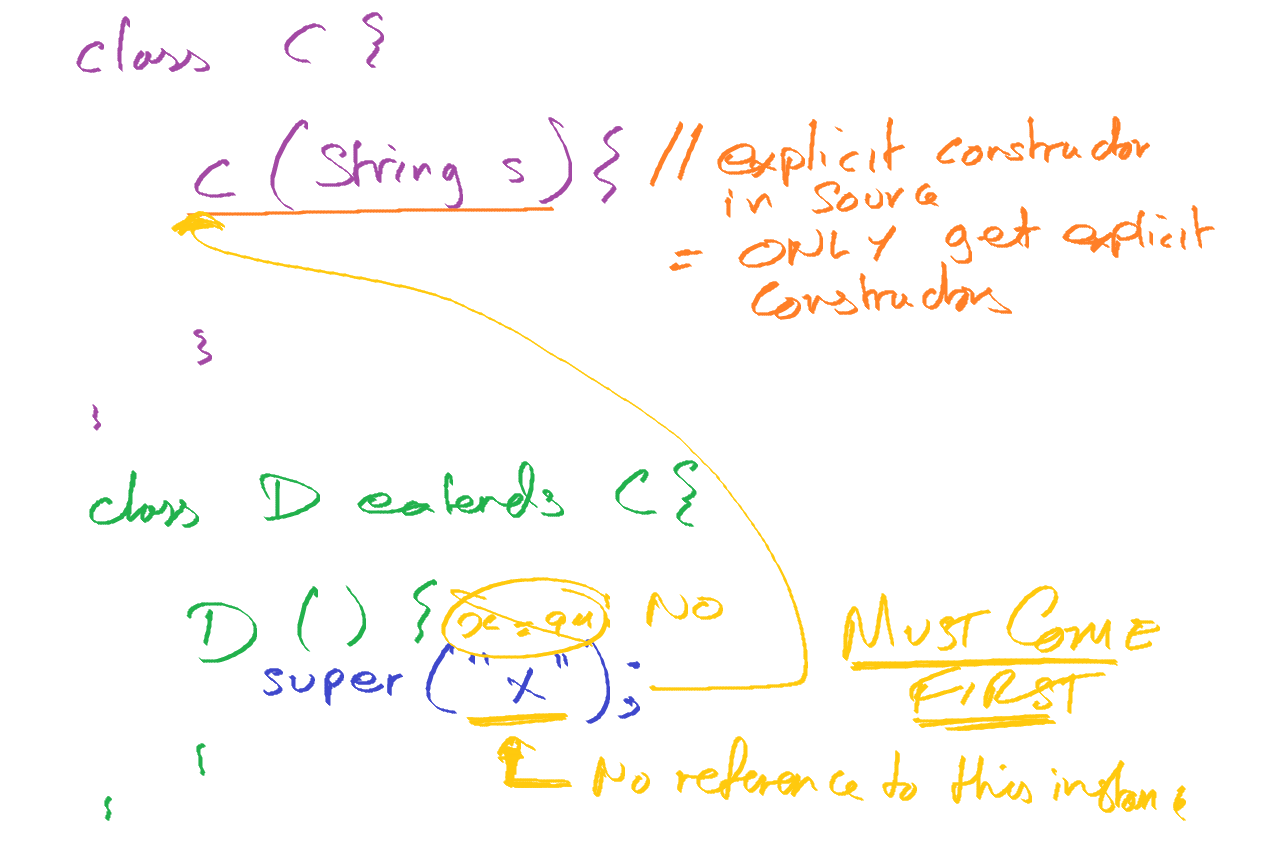 class C {
C (String s) { // explicit constructor
in source
= ONLY get explicit
constructors
}
}
class D extends C {
D () { x = 94; NO
super ("X"); MUST COME
FIRST
No reference to this instance
}
}